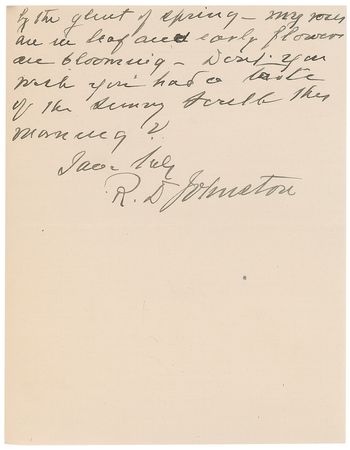 by the glint of spring – my roses
are in leaf and early flowers
are blooming – Don't you
wish you had a taste
of the Sunny South this
morning?
Truly
R. D Johnston